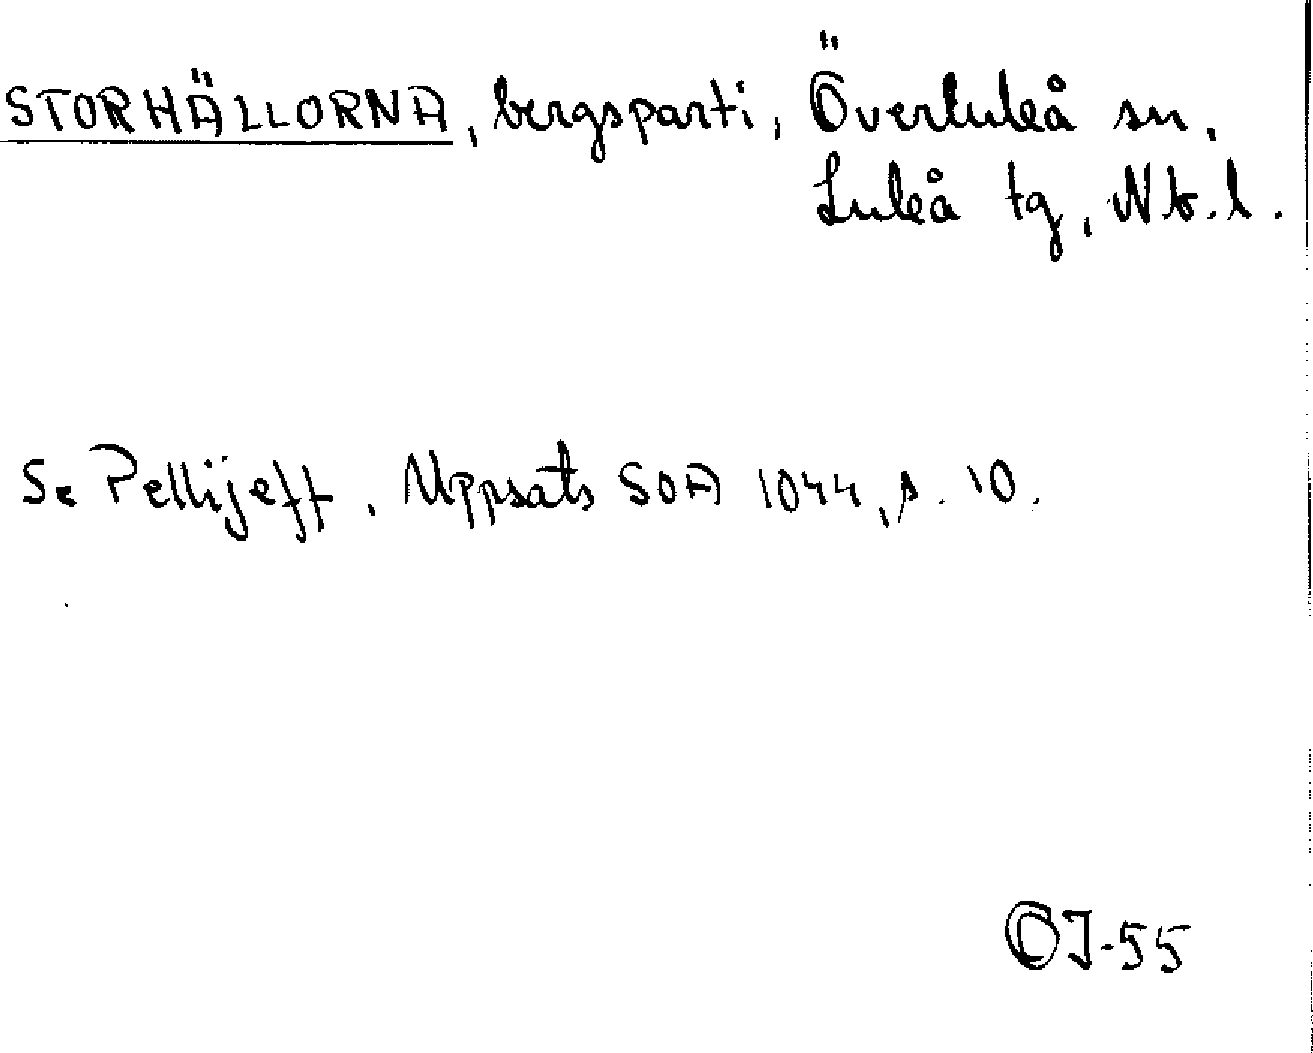 STORHÄLLORNA, bergsparti, Överluleå sn,
Luleå tg, Nb.l.
Se Pellijeff, Uppsats SOA 1044, s. 10.
CJ-55